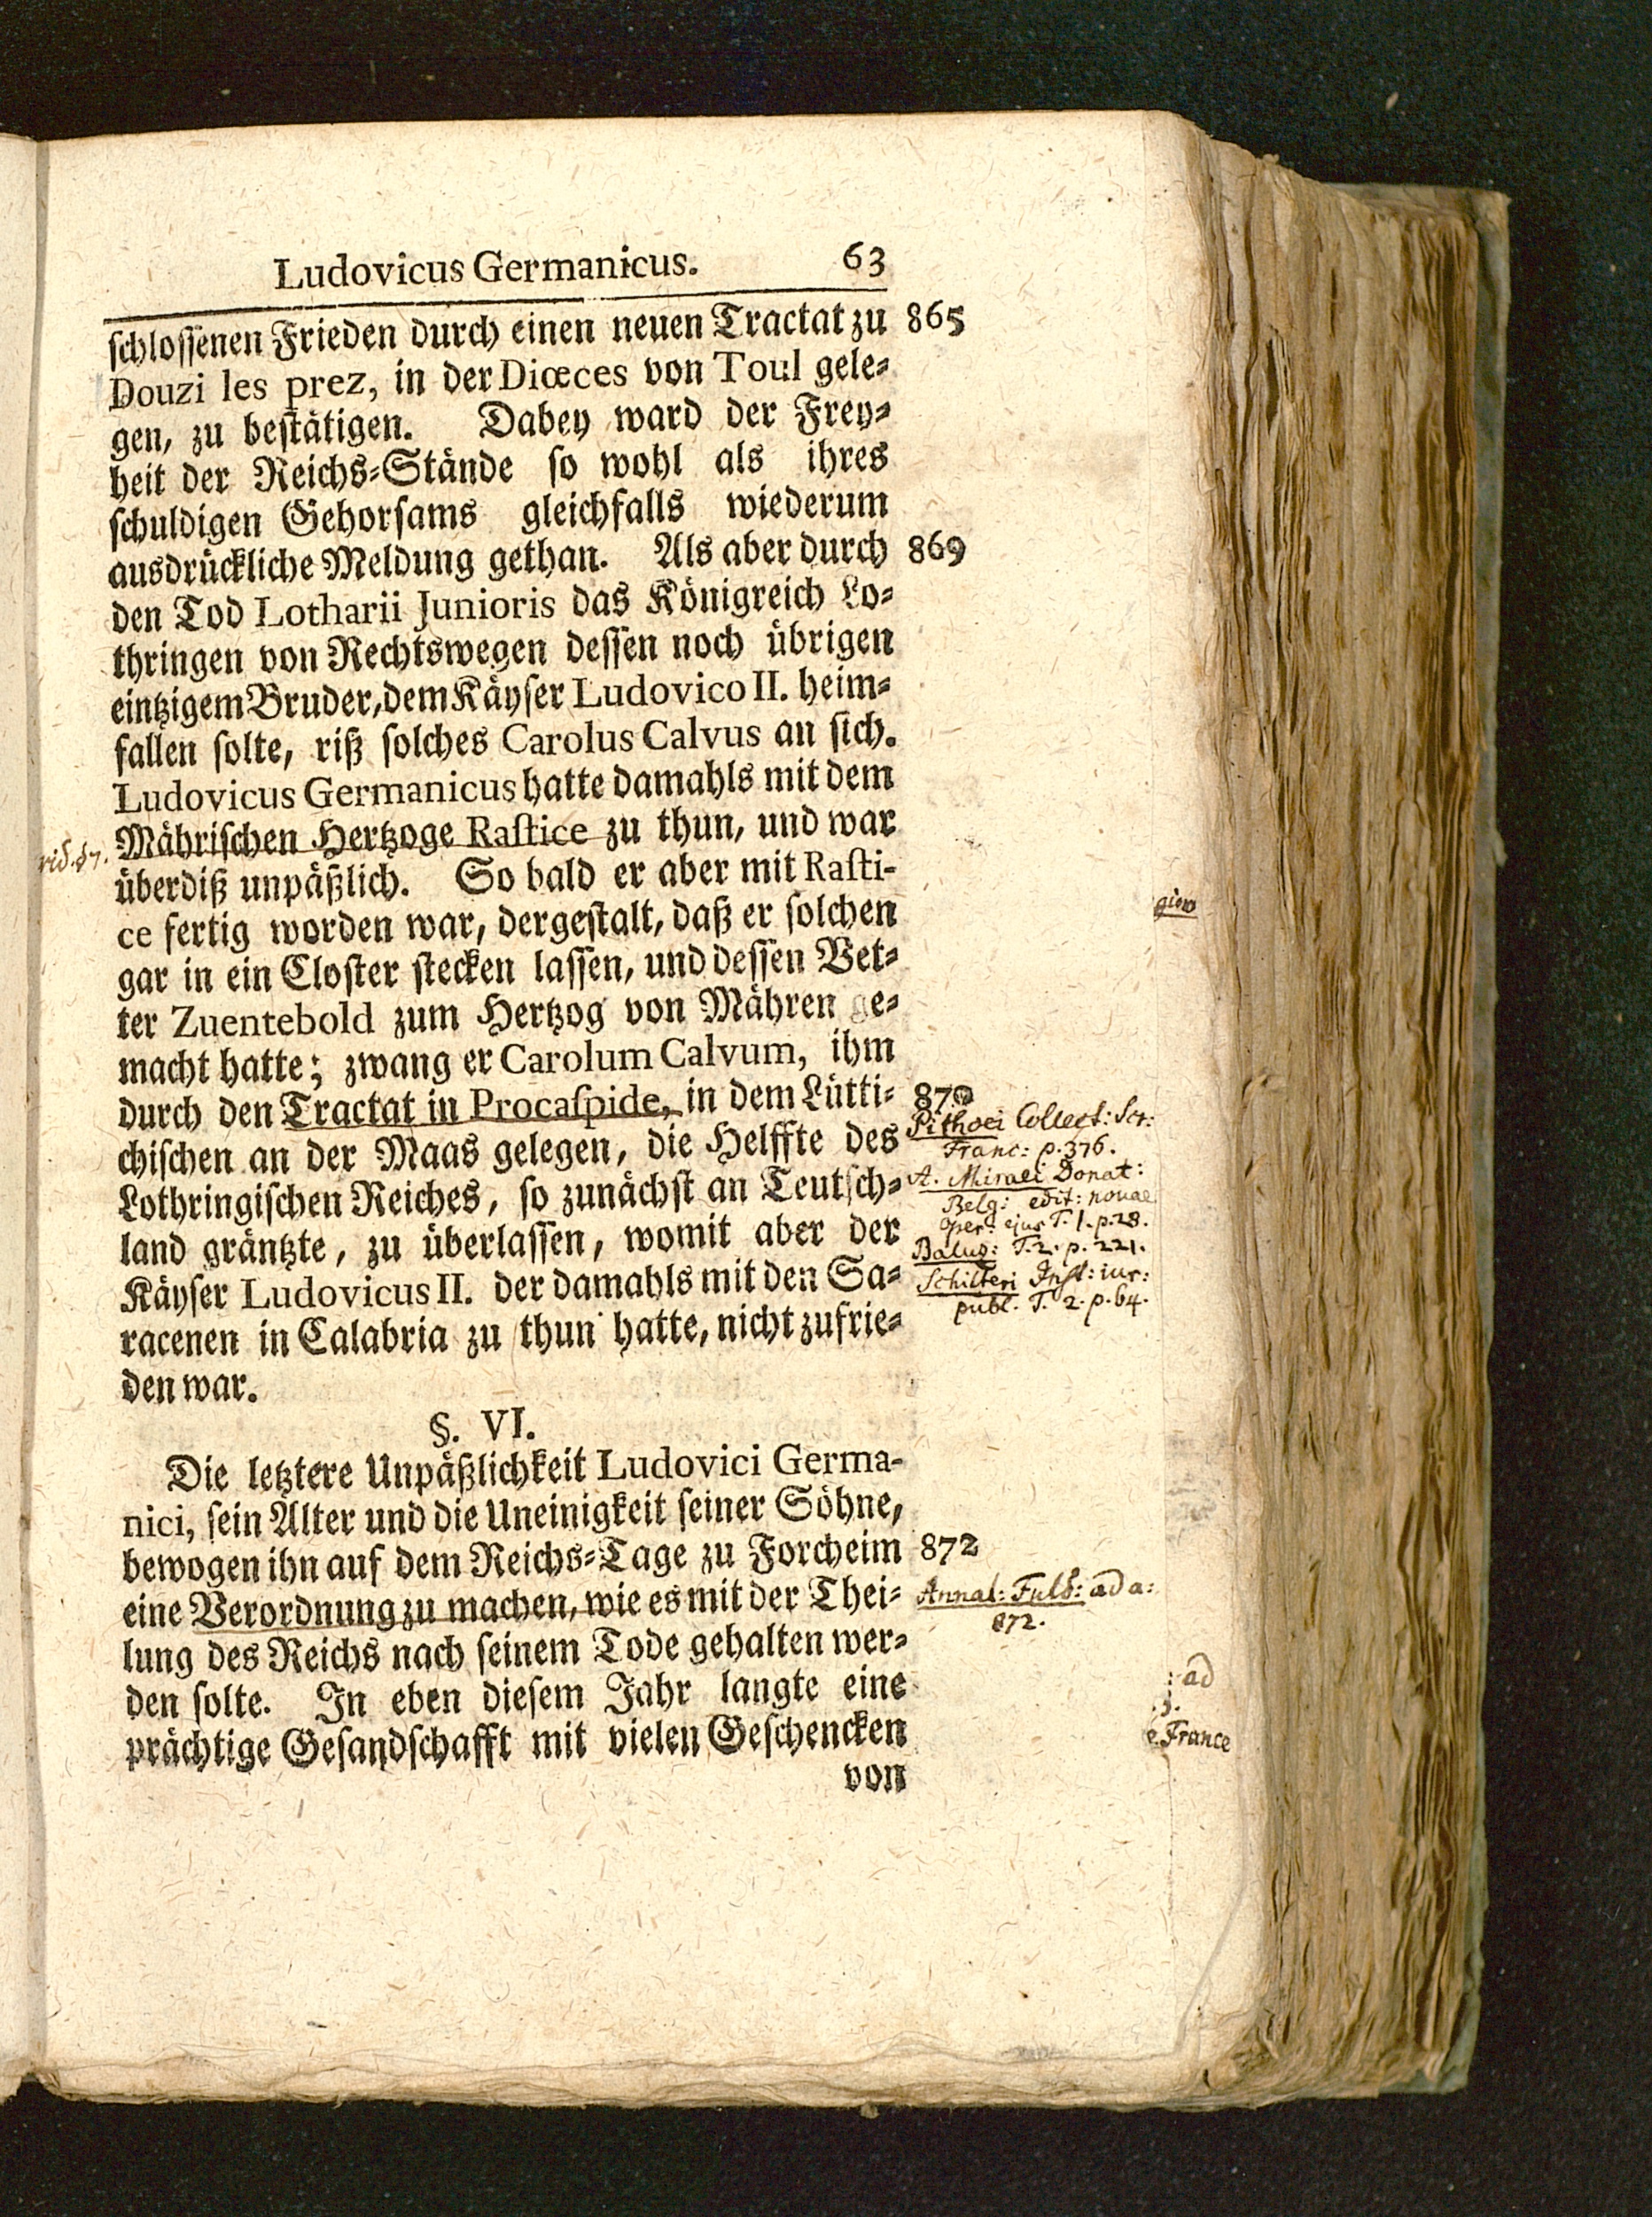 Ludovicus Germanicus. 63
schlossenen Frieden durch einen neuen Tractat zu 865
Douzi les prez, in der Diœces von Toul gele-
gen, zu bestätigen. Dabey ward der Frey-
heit der Reichs-Stände so wohl als ihres
schuldigen Gehorsams gleichfalls wiederum
ausdrückliche Meldung gethan. Als aber durch 869
den Tod Lotharii Junioris das Königreich Lo-
thringen von Rechtswegen dessen noch übrigen
eintzigem Bruder, dem Käyser Ludovico II. heim-
fallen solte, riß solches Carolus Calvus an sich.
Ludovicus Germanicus hatte damahls mit dem
Mährischen Hertzoge Rastice zu thun, und war
überdiß unpäßlich. So bald er aber mit Rasti-
ce fertig worden war, dergestalt, daß er solchen
gar in ein Closter stecken lassen, und dessen Vet-
ter Zuentebold zum Hertzog von Mähren ge-
macht hatte; zwang er Carolum Calvum, ihm
durch den Tractat in Procaspide, in dem Lütti- 870
chischen an der Maas gelegen, die Helffte des
Lothringischen Reiches, so zunächst an Teutsch-
land gräntzte, zu überlassen, womit aber der
Käyser Ludovicus II. der damahls mit den Sa-
racenen in Calabria zu thun hatte, nicht zufrie-
den war.
Pithoei Collect: Scr:
Franc: p. 376.
A. Miraei Donat:
Belg: edit: novae
oper: ejus T. 1. p. 28.
Baluz: T. 2. p. 221.
Schilteri Inst: iur:
publ. T. 2. p. 64.
§. VI.
Die letztere Unpäßlichkeit Ludovici Germa-
nici, sein Alter und die Uneinigkeit seiner Söhne,
bewogen ihn auf dem Reichs-Tage zu Forcheim 872
eine Verordnung zu machen, wie es mit der Thei-
lung des Reichs nach seinem Tode gehalten wer-
den solte. In eben diesem Jahr langte eine
prächtige Gesandschafft mit vielen Geschencken
von
Annal: Fuld: ad a:
872.
: ad
e France